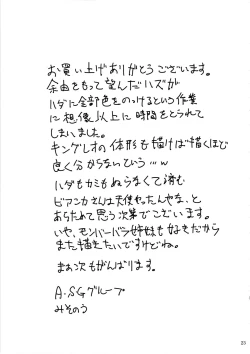 お買い上げありがとうございます。
余白をもって望んだハズが
ハダに全部色をのっけるという作業
に想像以上に時間をとられて
しまいました。
キングレオの体形も描けば描くほど
良く分からないていう…w
ハダもカミもぬらなくて済む
ビアンカさんは天使やったんやな、と
あらためて思う次第でございます。
いや、モンバーバラ姉妹も好きだから
また描きたいですけどね。
まぁ次もがんばります。
A・SGグループ
みそのう
23